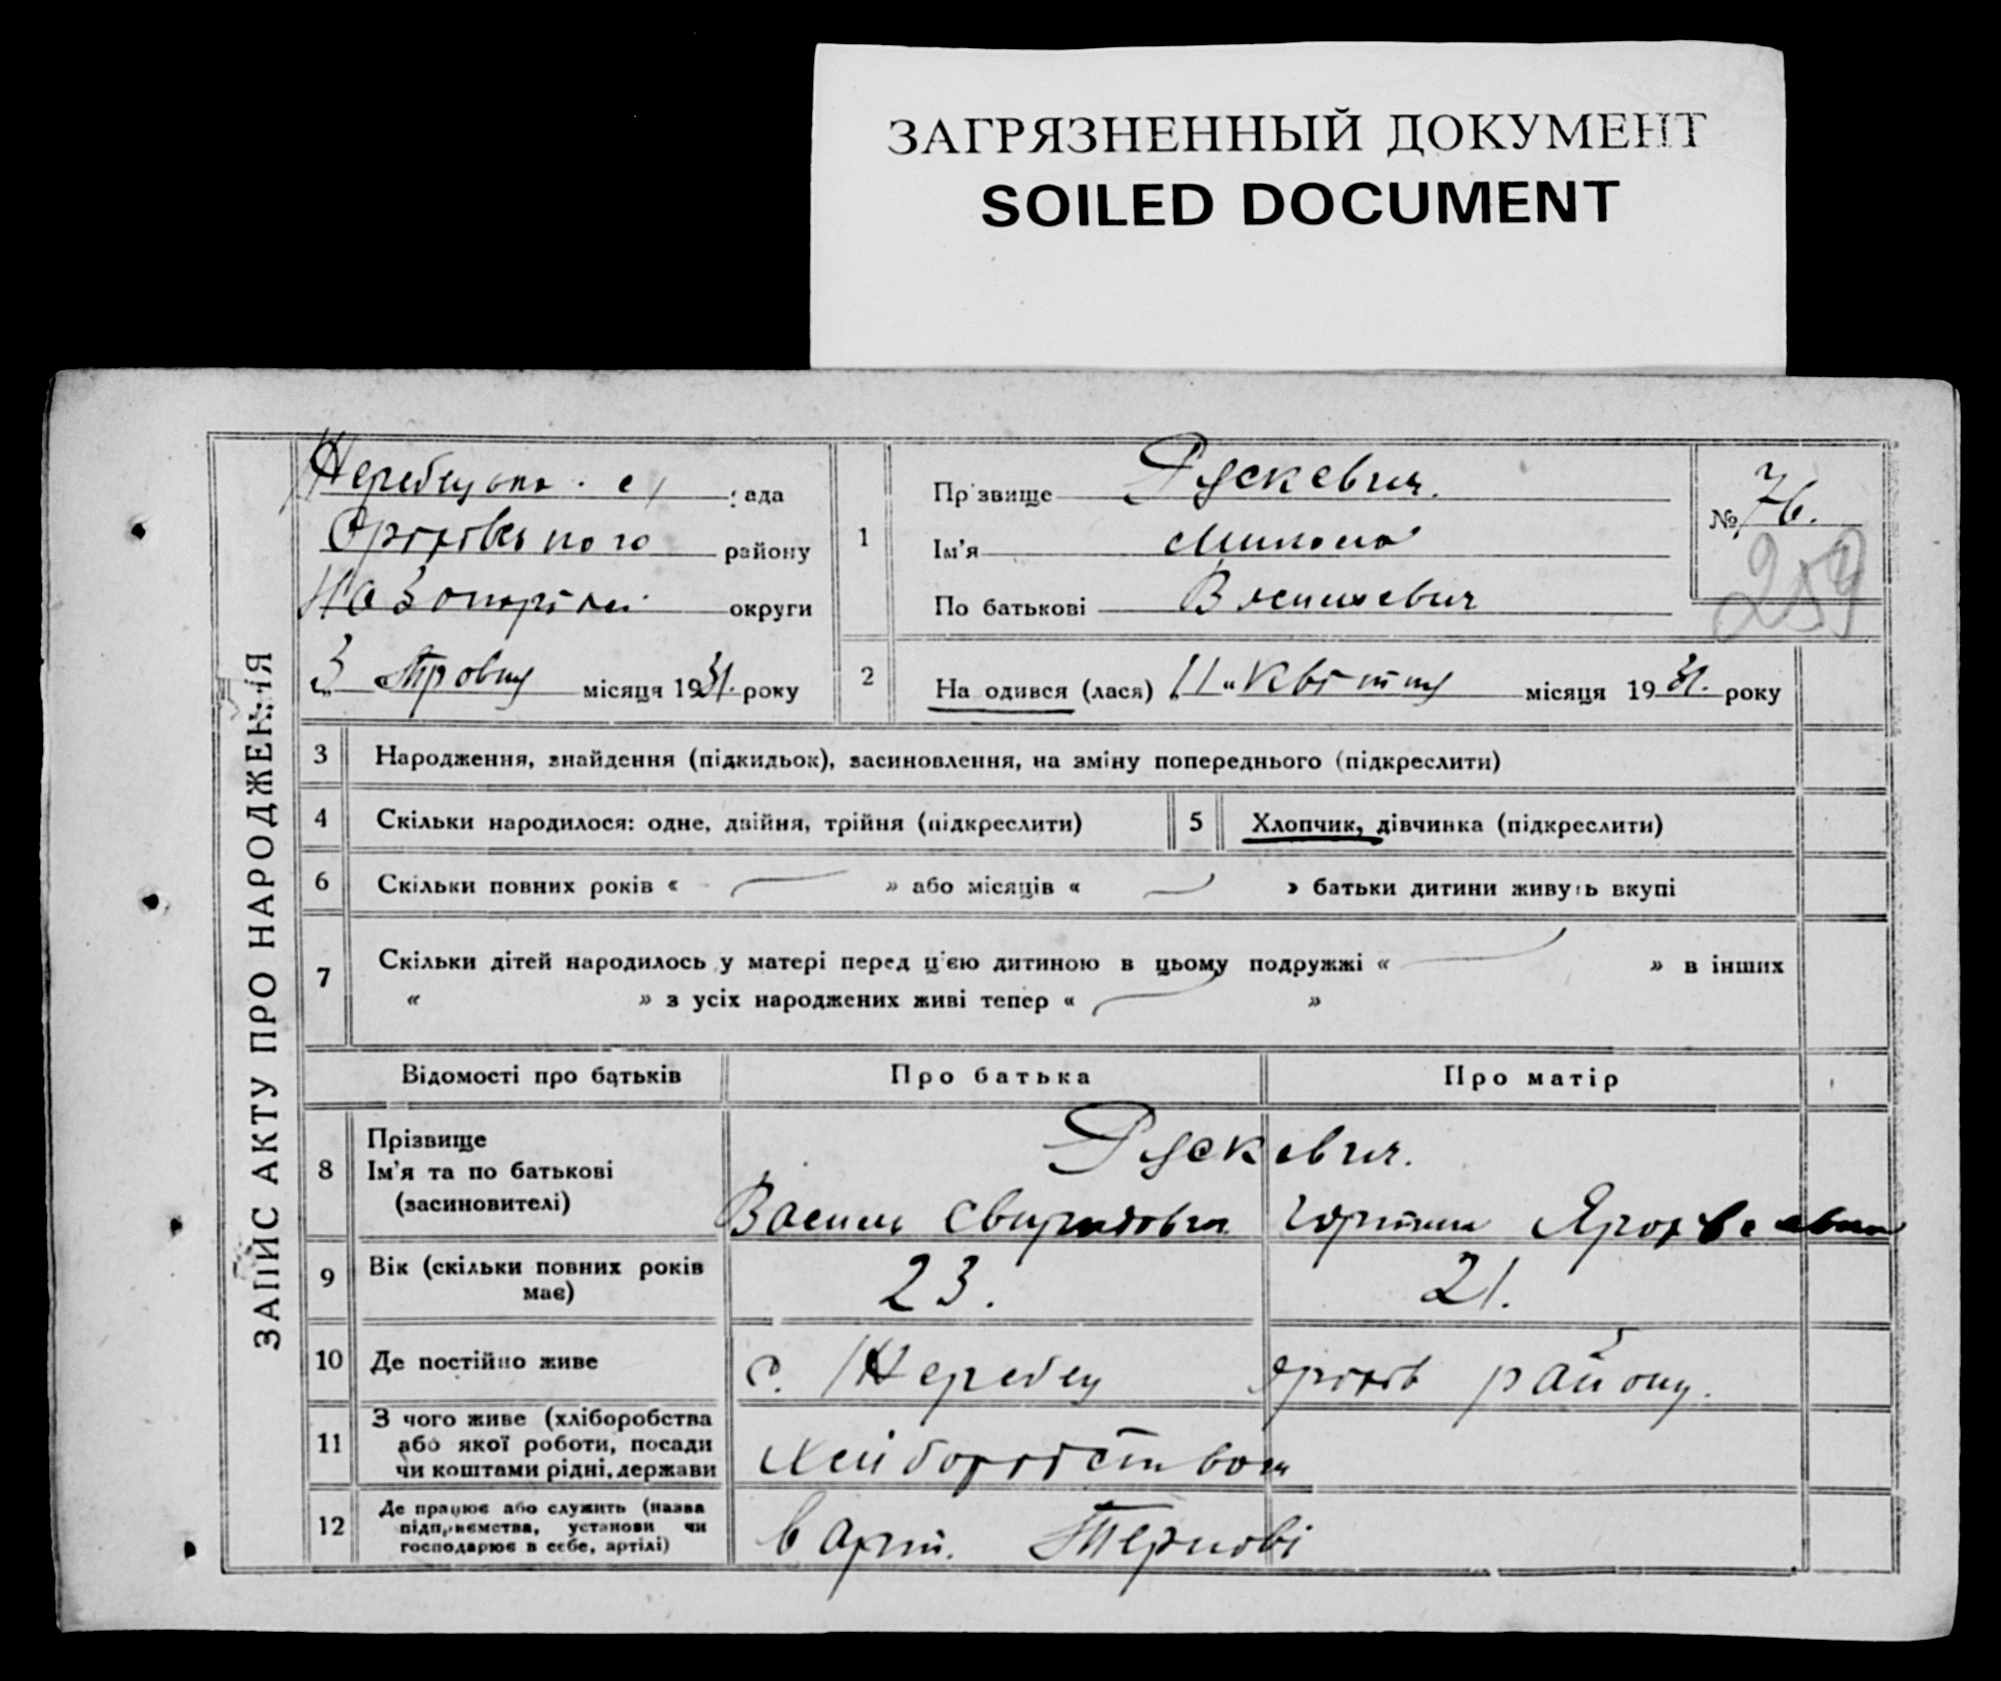 ЗАГРЯЗНЕННЫЙ ДОКУМЕНТ
SOILED DOCUMENT
ЗАПИС АКТУ ПРО НАРОДЖЕННЯ
рада
Оріхівського району
округи
3 Травня місяця 1931. року
1
Прізвище Рускевич.
Ім'я Микола
По батькові Васильевич
№ 76.
259
2
Народився (лася) „11" Квітня місяця 1931. року
3 Народження, знайдення (підкидьок), засиновлення, на зміну попереднього (підкреслити)
4 Скільки народилося: одне, двійня, трійня (підкреслити)
5 Хлопчик, дівчинка (підкреслити)
6 Скільки повних років « » або місяців « » батьки дитини живуть вкупі
7 Скільки дітей народилось у матері перед ц'єю дитиною в цьому подружжі « » в інших
« » з усіх народжених живі тепер « »
Відомості про батьків Про батька Про матір
8 Прізвище
Ім'я та по батькові
(засиновителі)
Рускевич.
Василь Свиридович
9 Вік (скільки повних років
має)
23. 21.
10 Де постійно живе
с. Жеребец Оріхів району.
11 З чого живе (хліборобства
або якої роботи, посади
чи коштами рідні, держави
Хліборобством
12 Де працює або служить (назва
підприємства, установи чи
господарює в себе, артілі)
в арт.